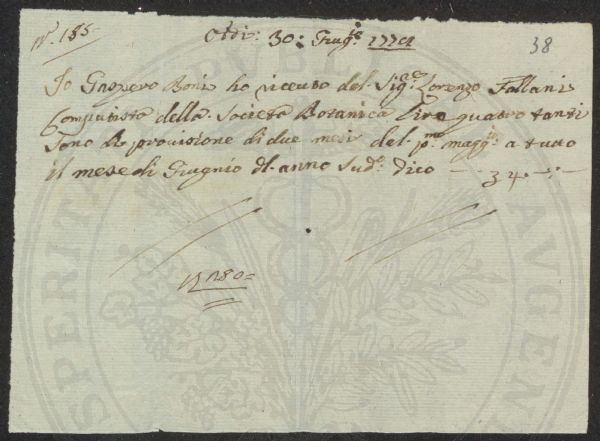 N°. 155.
Adi: 30: Giug.° 1774
38
Io Gaspero Boni ho riceuto dal Sig.re Lorenzo Fallani
Computista della Società Botanica Lire quatro tanti
sono P provisione di due mesi dal p.mo magg.io a tutto
il mese di Giugnio dl. anno Sud.° dico — 34. —:—
PUBLI
SPERIT
AUGEN